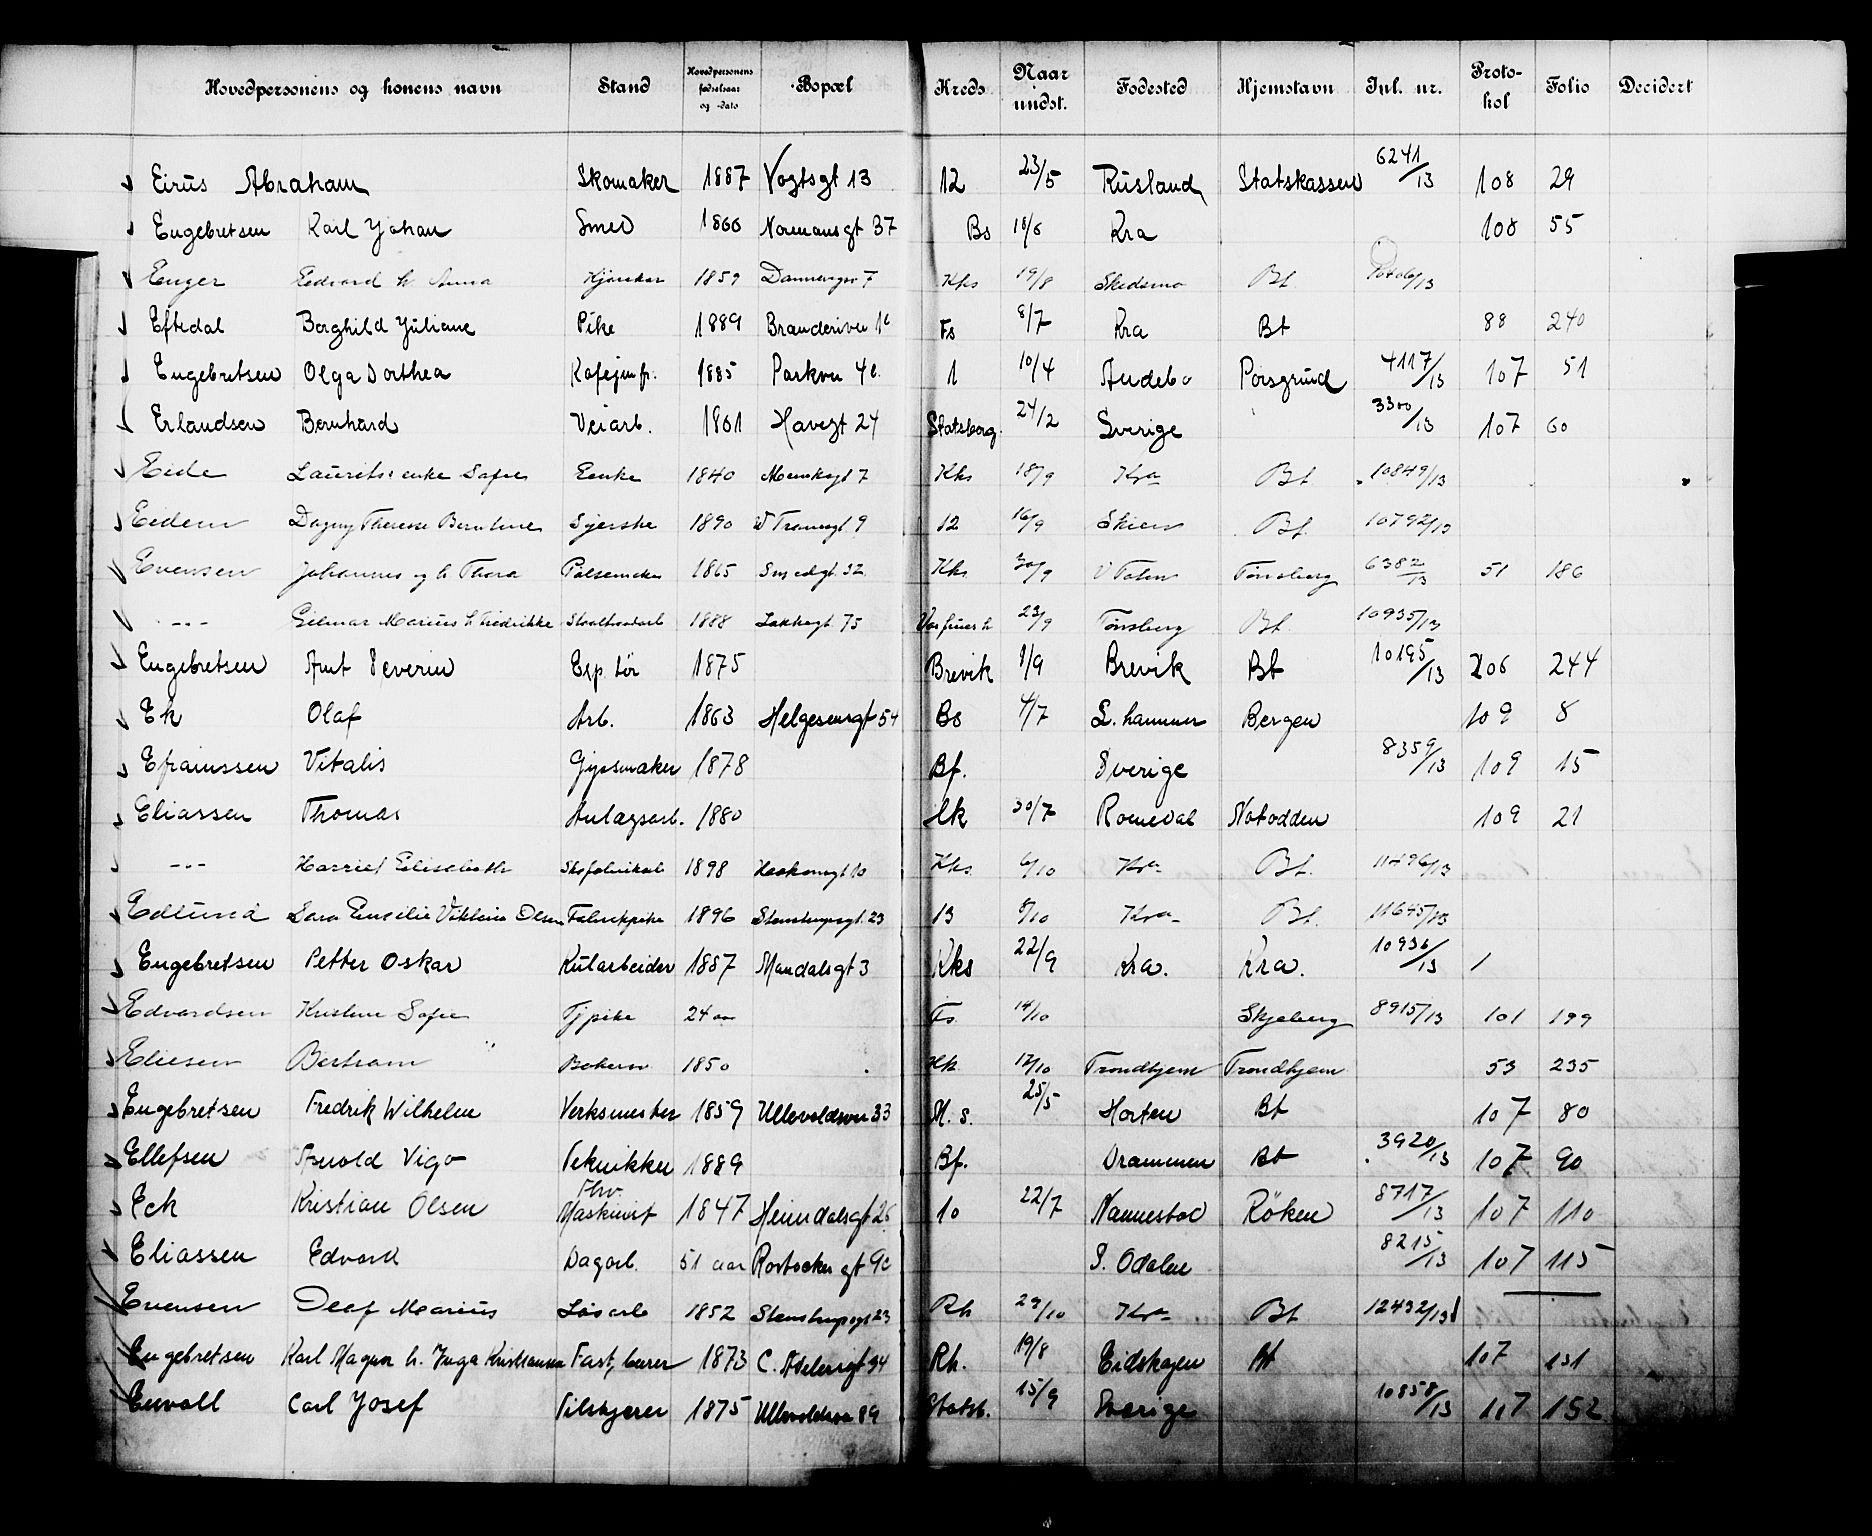 Hovedpersonens og konens navn Stand Hovedpersonens fødselsaar og -dato Bopæl Kreds Naar undst. Fødested Hjemstavn Jnl. nr. Protokol Folio Decidert
Eirus Abraham Skomaker 1887 Vogtsgt 13 12 23/5 Rusland Statskassen 6241/13 108 29
Engebretsen Karl Johan Smed 1866 Normansgt 37 Bs 18/6 Kra 108 55
Enger Edvard h Anna 1859 7 Kks 19/8 Skedsmo Bt
Eftedal Borghild Juliane Pike 1889 Fs 8/7 Kra Bt 88 240
Engebretsen Olga Dorthea 1885 Parkvn 1 10/4 Andebo Porsgrund 4117/13 107 51
Erlandsen Bernhard Veiarb. 1861 Havegt 24 Statsborg. 24/2 Sverige 3300/13 107 60
Eide enke Safie Enke 1840 7 Kks 18/9 Kra Bt 10849/13
Eidem Dagny Therese Berntine Syerske 1890 W Tranesgt 9 12 16/9 Skien Bt. 10792/13
Evensen Johannes og h Thora Pølsemaker 1865 Smedgt. 32 Kks 30/9 Tønsberg 6382/13 51 186
--- Marius h Fredrikke 1888 Lakkegt 75 Vor fruer h 23/9 Tønsberg Bt. 10935/13
Engebretsen Amt Severin Exp. tør 1875 Brevik 1/9 Brevik Bt 10195/13 206 244
Ek Olaf Arb. 1863 Helgesensgt 54 Bs 4/7 L. hammer Bergen 109 8
Efraimssen Vitalis Gipsmaker 1878 Bf. Sverige 8359/13 109 15
Eliassen Thomas Anlægsarb. 1880 30/7 Romedal Notodden 109 21
--- Harriet Elisabeth 1898 Haakonsgt 10 Kks 6/10 Kra Bt. 11496/13
Edlund Sara Emilie Viktoria Olsen Fabrikpike 1896 Stenstrupsgt. 23 13 8/10 Kra Bt. 11645/13
Engebretsen Petter Oskar Kularbeider 1887 Mandalsgt 3 Kks 22/9 Kra. Kra. 10936/13 /
Edvardsen Kristine Sofie Tjpike 24 aar Fs. 14/10 Skjeberg 8915/13 101 199
Eliesen Bertram 1850 17/10 Trondhjem Trondhjem 53 235
Engebretsen Fredrik Wilhelm Verksmester 1859 Ullevoldsvn 33 M. s. 25/5 Horten Bt 107 80
Ellefsen Arnold Vigo Tekniker 1889 Bf. Drammen Bt 3920/13 107 90
Eck Kristian Olsen Fhv. Maskinist 1847 Heimdalsgt 26 10 22/7 Nannestad Röken 8717/13 107 110
Eliassen Edvard Dagarb. 51 aar Rostocker gt S. Odalen 8215/13 107 115
Evensen Olaf Marius Løsarb 1852 Stenstrupsgt 23 Rh 29/10 Kra Bt 12432/13
Engebretsen Karl Magnus h. Inga Kristianna 1873 C. Adelersgt 34 Rh. 19/8 Eidskogen Bt 107 131
Envall Carl Josef Filskjærer 1875 Ullevoldsvn 89 Statsb. 15/9 Sverige 10858/13 117 152